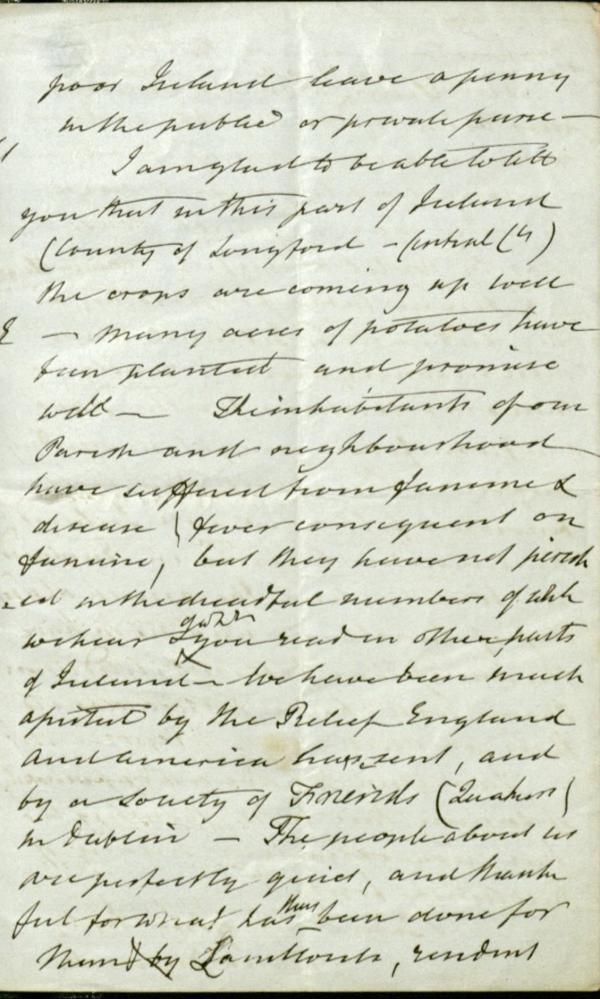 poor Ireland leave a penny
in the public or private purse —
I am glad to be able to tell
you that in this part of Ireland
(County of Longford – Central
the crops are coming up well
— many acres of potatoes have
been planted and promise
well — The inhabitants of our
Parish and neighbourhood
have suffered from famine &
disease (fever consequent on
famine, but they have not perish
-ed in the dreadful numbers of whh
we hear & you read in other parts
of Ireland — We have been much
assisted by the Relief England
and America has sent, and
by a Society of Friends (Quakers)
in Dublin — The people about us
are perfectly quiet, and thank
ful for what has thus been done for
them by Landlords, resident